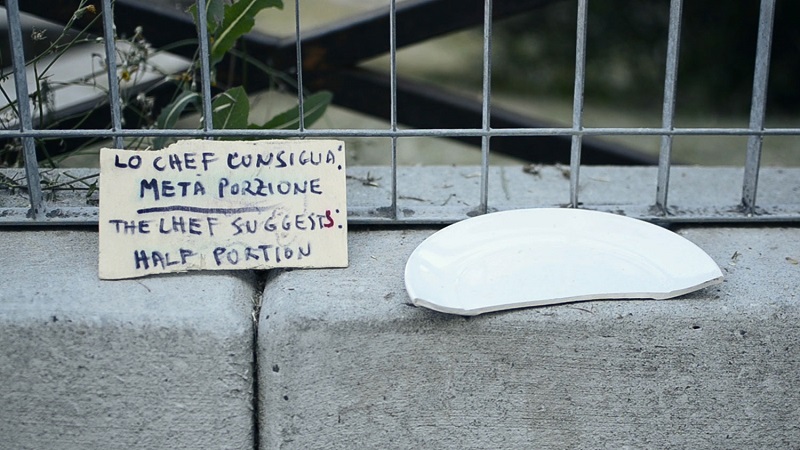 LO CHEF CONSIGLIA:
METÀ PORZIONE
THE CHEF SUGGESTS:
HALF PORTION